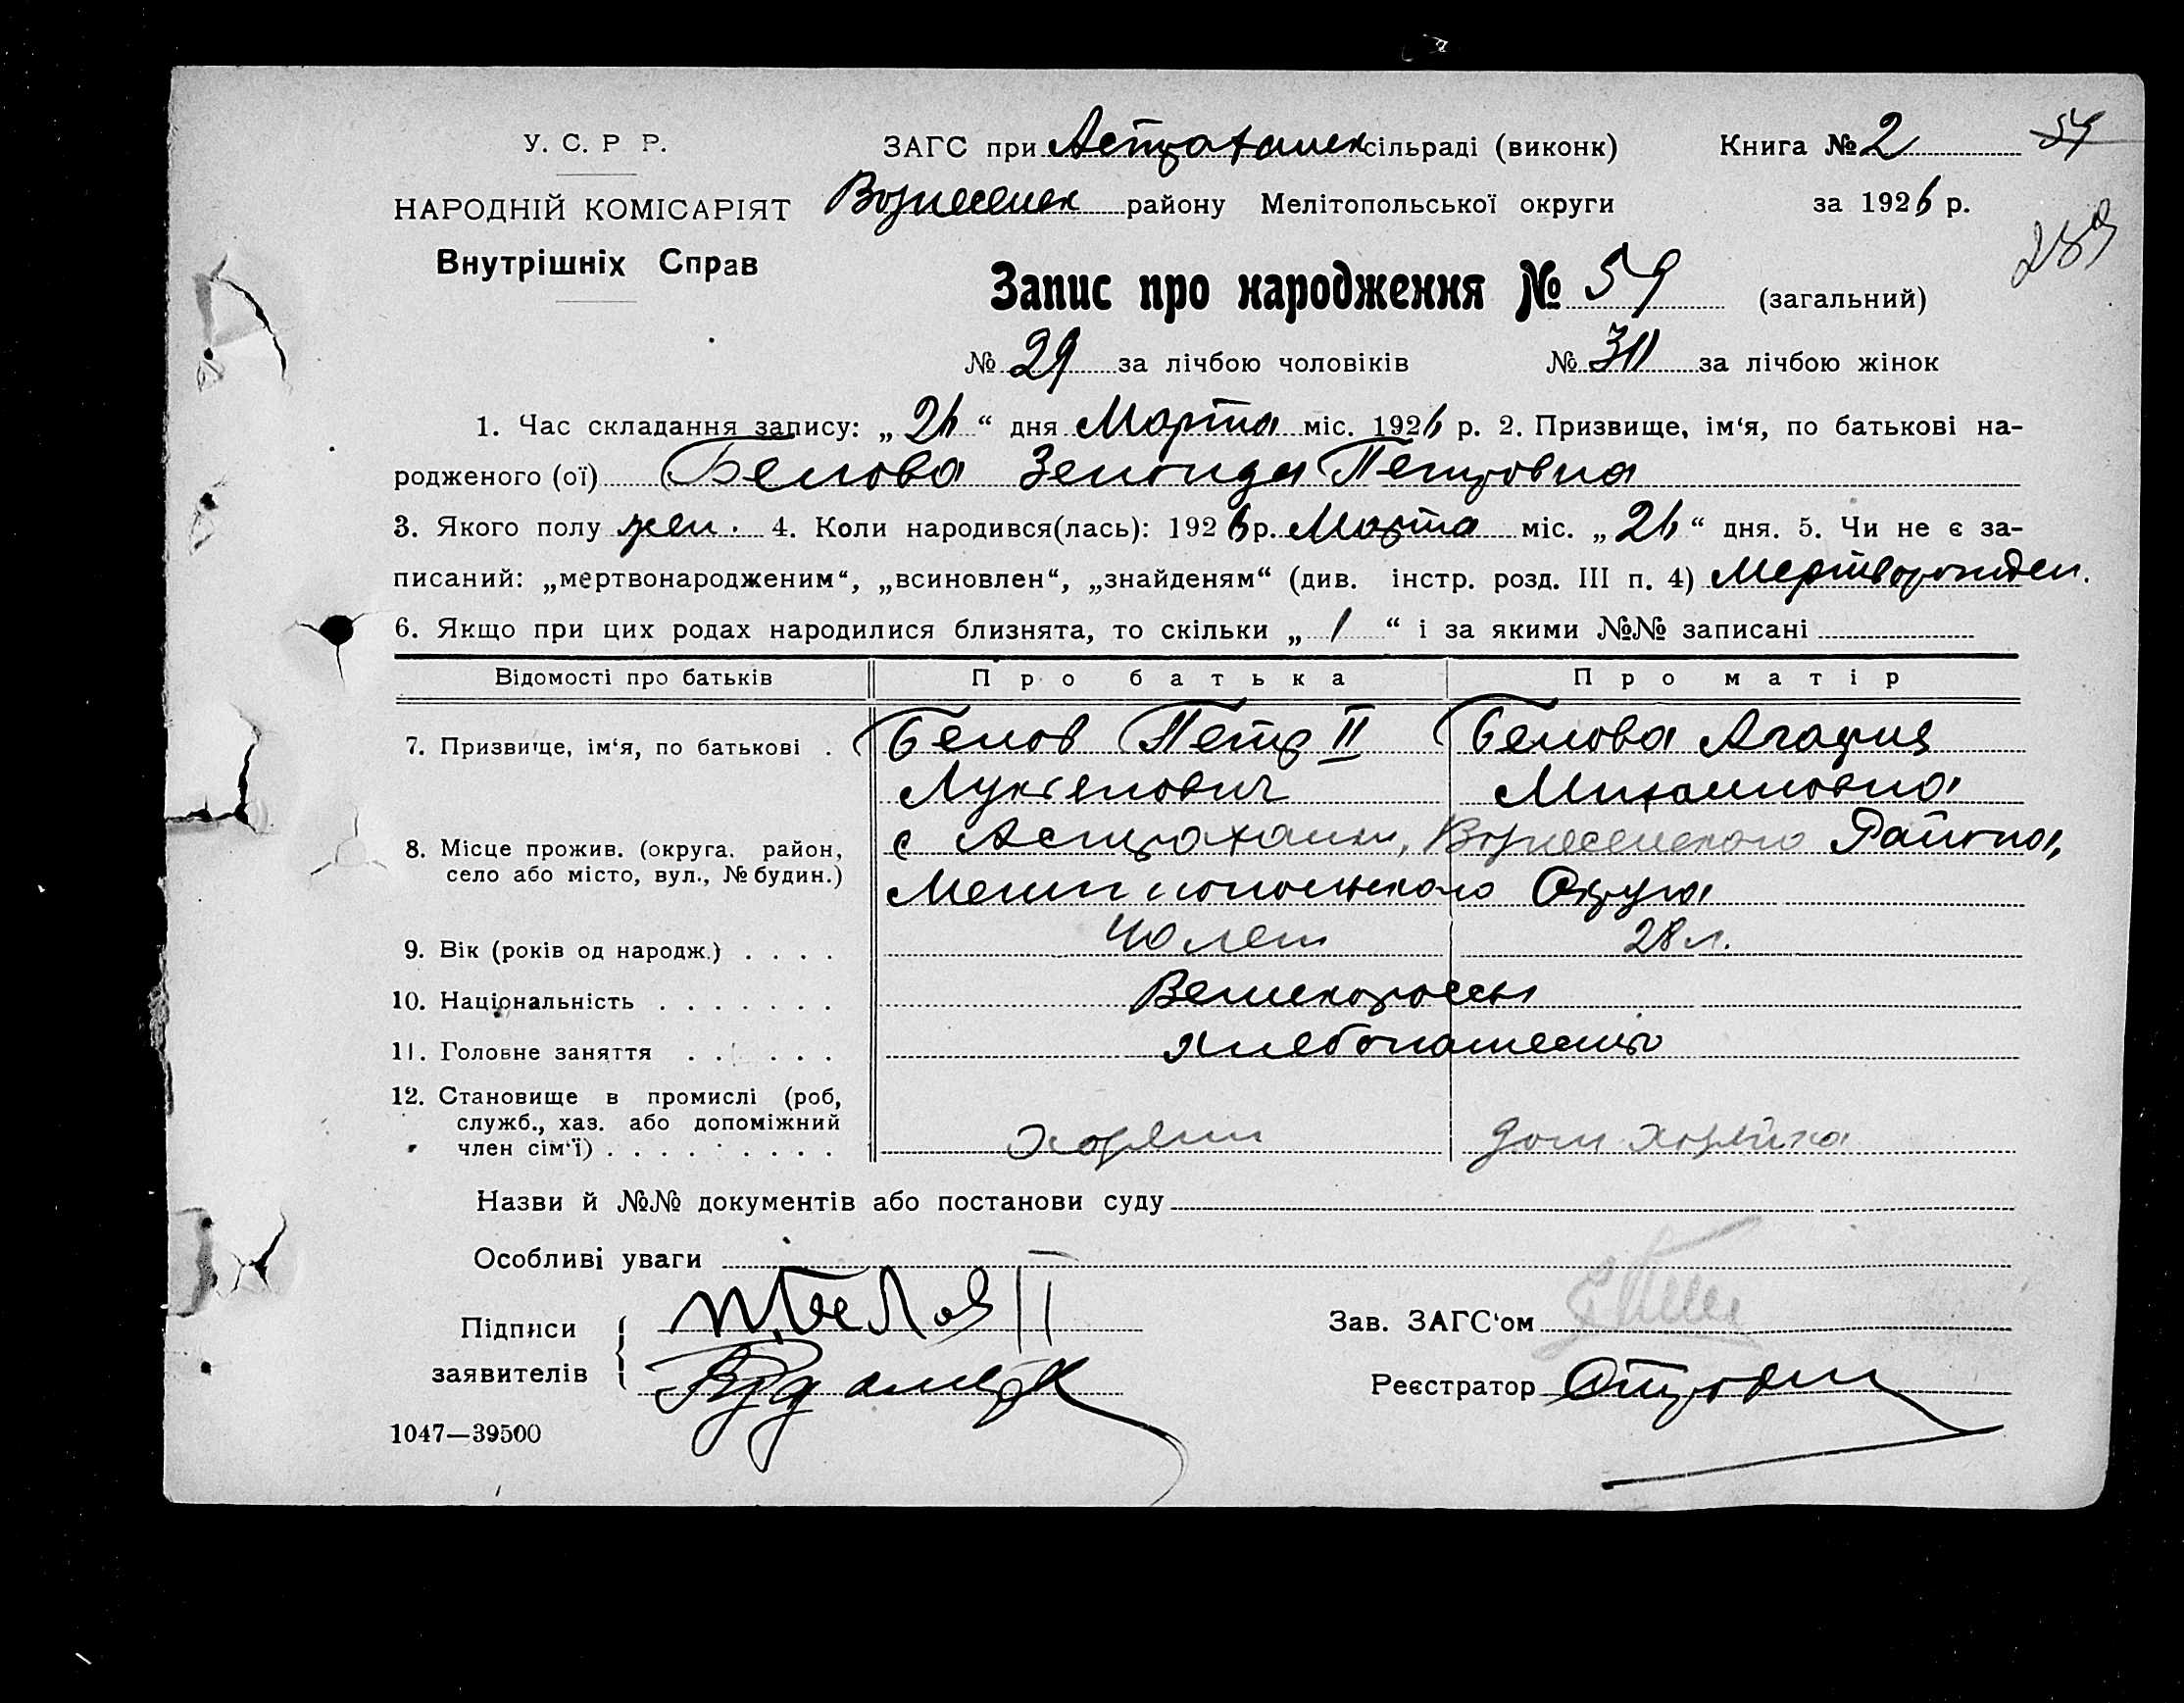 У. С. Р Р. ЗАГС при Астраханск сільраді (виконк) Книга № 2 59
НАРОДНІЙ КОМІСАРІЯТ Вознесенск району Мелітопольської округи за 1926 р.
Внутрішніх Справ
289
Запис про народження № 59 (загальний)
№ 29 за лічбою чоловіків № 30 за лічбою жінок
1. Час складання запису: „ 26 “ дня Марта міс. 1926 р. 2. Призвище, ім‘я, по батькові на-
родженого (ої) Белова Зеноида Петровна
3. Якого полу жен. 4. Коли народився(лась): 1926 р. Марта міс. „ 26 “ дня. 5. Чи не є за-
писаний: „мертвонародженим“, „всиновлен“, „знайденям“ (див. інстр. розд. III п. 4) Мертворожден.
6. Якщо при цих родах народилися близнята, то скільки „ 1 “ і за якими №№ записані
Відомості про батьків Про батька Про матір
7. Призвище, ім‘я, по батькові . Белов Петр II Белова Агафия
Лукьянович Михаиловна
8. Місце прожив. (округа, район, с Астраханки, Вознесенского Района,
село або місто, вул., № будин.) Мелитопольского Округа
9. Вік (років од народж.) . . . . 40 лет 28 л.
10. Національність . . . . . . . Великороссы
11. Головне заняття . . . . . . хлебопашество
12. Становище в промислі (роб,
служб., хаз. або допоміжний
член сім‘ї) . . . . . . . . . хозяин дом хозяйка
Назви й №№ документів або постанови суду
Особливі уваги
Підписи П. Белов II Зав. ЗАГС‘ом
заявителів Реєстратор
1047—39500